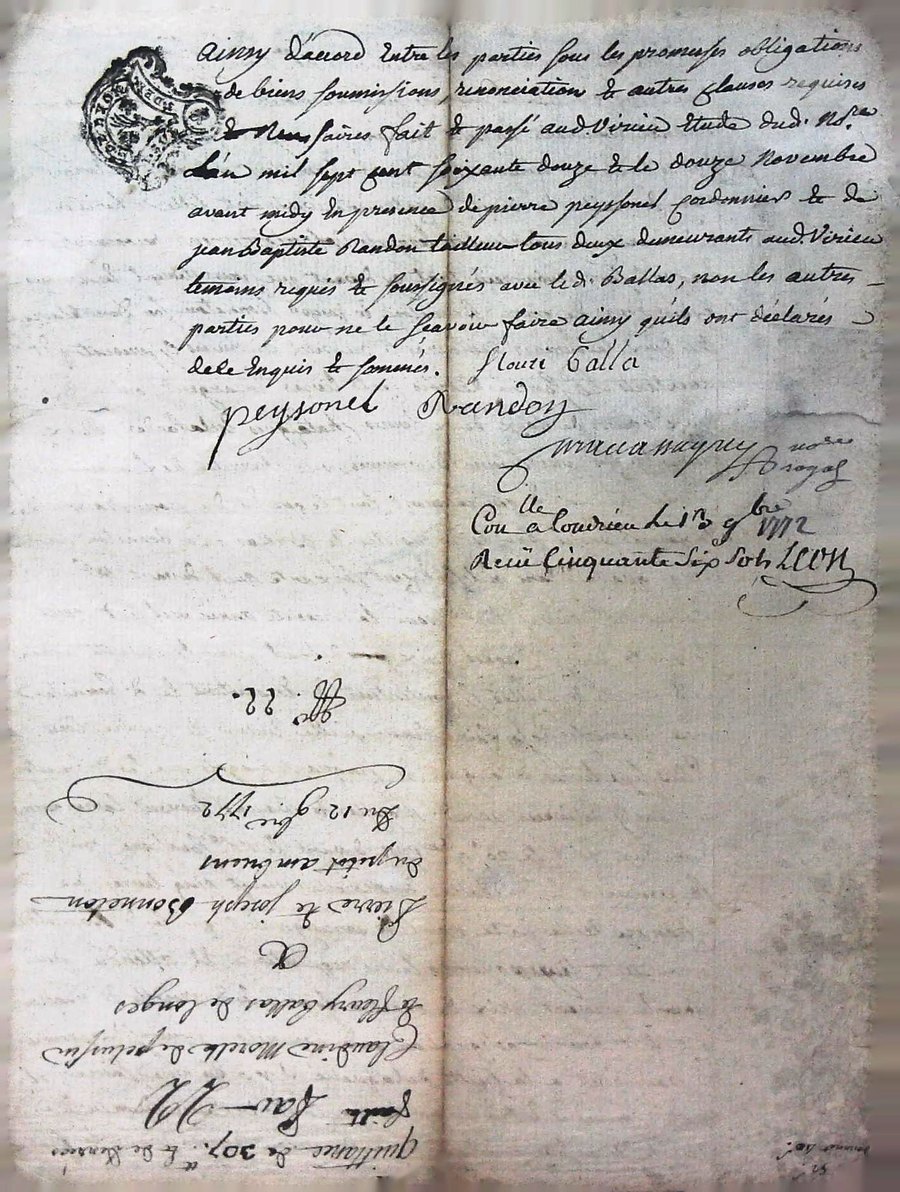 ainsy d'acord Entre les parties sous les promesses obligations
de biens soumissions, renonciation & autres clauses requises
& Nessaires fait & passé aud. Virieu Etude dud. No.re
L'an mil sept cent soixante douze & le douze Novembre
avant midy En presence de pierre peyssonel Cordonnier & de
jean Baptiste Randon tailleur tous deux demeurants aud. Virieu
temoins requis & soussignés avec led. Ballas, non les autres
parties pour ne le sçavoir faire ainsy qu'ils ont déclarés
de ce Enquis & sommés. fleuri Balla
peysonel Randon
no.re royal
Con.lle a Condrieu le 13 9bre 1772
Recu Cinquante Six Sols LEON
N.° 22.
Du 12 9bre 1772
du petit ambuens
Pierre & joseph Bonneton
A
& fleury Ballas de longes
Claudine Morelle de pelussin
quittance de 307.# & de